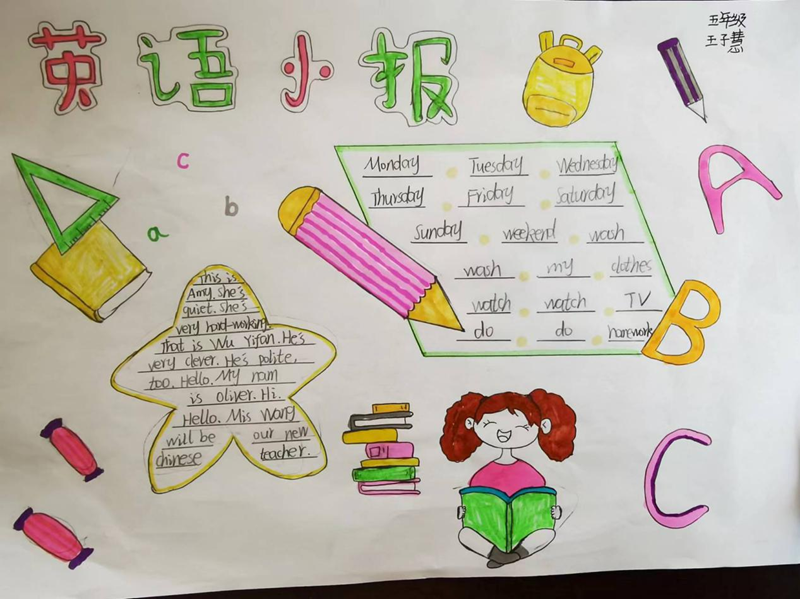 英语小报
五年级
王子慧
c
b
a
A
B
C
Monday Tuesday Wednesday
Thursday Friday Saturday
Sunday weekend wash
wash my clothes
watch watch TV
do do homework
This is
Amy. She's
quiet. She's
very hard-working.
That is Wu Yifan. He's
very clever. He's polite,
too. Hello. My nam
is oliver. Hi.
Hello. Mis Wang
will be our new
chinese teacher.